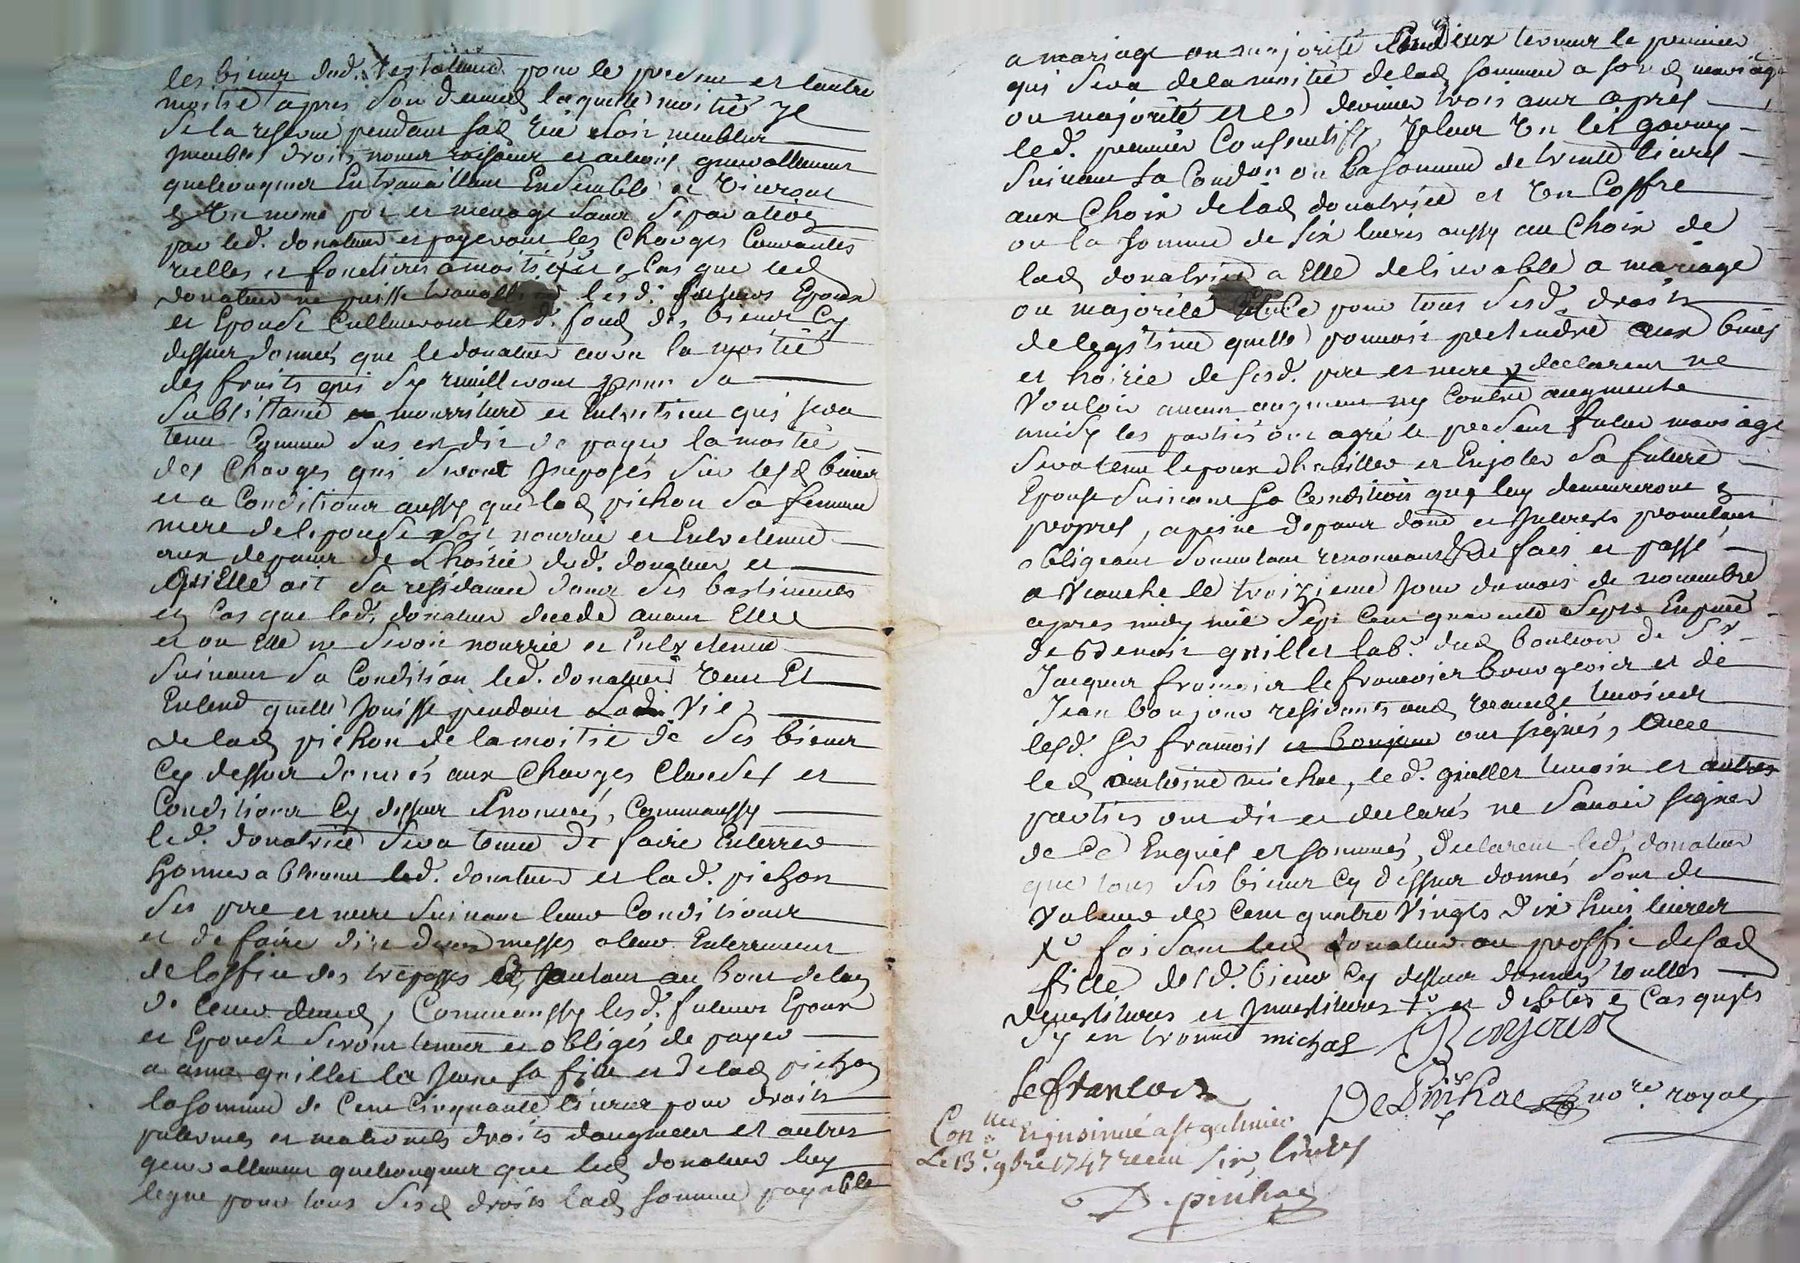 les biens dud. testateur pour le present et l'autre
moitié apres son deceds laquelle moitié Il
se la reserve pendant sad. vie soit meubles
Immeubles droits noms raisons et actions generallement
quelconques En travaillant Ensemble et vivront
en un meme pot et menage sans separation
par led. donateur et payeront les Charges Courantes
reelles et foncieres a moitié en Cas que led
donateur ne puisse travallier lesd. futurs Epoux
et Epouse Cultiveront lesd. fond des biens Cy
dessus donnés que le donateur aura la moitié
des fruits qui s'y cuilliront pour sa
subsistance nourriture et Entretien qui sera
tenu Comme sus est dit de payer la moitié
des Charges qui seront Imposés sur lesd biens
et a Conditions aussy que lad pichon sa femme
mere de l'epouse soit nourrie et Entretenue
aux depans de L'hoirie dud. donateur et
qu'Elle ait sa residance dans ses bastiments
en Cas que led. donateur decede avant Elle
et ou Elle ne seroit nourrie et Entretenue
suivant sa Condition led. donateur veut Et
Entend quelle Jouisse pendant sa vie
de lad pichon de la moitié de ses biens
Cy dessus donnés aux Charges Clauses et
Conditions Cy dessus Enoncés, Comm'aussy
led. donatrice sera tenue de faire Enterrer
honnorablement led. donateur et lad. pichon
ses pere et mere suivant leurs Conditions
et de faire dire deux messes a leur Enterrement
de l'offise des trepassés et autant au bout de l'an
de leurs deceds, Comm'aussy lesd. futurs Epoux
et Epouse seront tenus et obligés de payer
a anne guillet la Jeune sa fille et de lad pichon
la somme de Cent Cinquante livres pour droits
paternels et maternels droits d'augment et autres
generallement quelconques que led donateur luy
legue pour tous sesd droits lad somme payable
a mariage ou majorité En deux termes le premier
qui sera de la moitié de lad somme a sond mariage
ou majorité et le dernier trois ans apres
led. premier Consecutifs, Plus un lit garny
suivant sa Condon ou la somme de trente livres
aux Choix de lad donatrice et un Coffre
ou la somme de six livres aussy au Choix de
lad donatrice a Elle delivrable a mariage
ou majorité Et Ce pour tous sesd. droits
de legitime quelle pouvoit pretendre aux biens
et hoirie de sesd. pere et mere declarent ne
vouloir aucun augment ny Contre augment
midy les partiés ont agré le present futur mariage
sera tenu l'epoux d'habiller et Enjoler sa future
Epouse suivant sa Condition que luy demeureront
propres, a peine depans dom et Interests promettant
obligeant soumettant renonceant fait et passé
a Veauche le troizieme Jour du mois de novembre
apres midy mil Sept Cent quarante Sept En presence
de Benoit guillet lab. dud bouteon de Sr
Jacques francois le francois bourgeois et de
Jean bonjour residents aud veauche temoins
lesd. Sr francois et bonjour ont signés, avec
led antoine michae, led. guillet temoin et autres
parties ont dit et declarés ne savoir signer
de Ce Enquis et sommés, declarent led. donateur
que tous ses biens Cy dessus donnés sont de
valeur de Cent quatre Vingts dix huit livres
faisant led donateur au proffit de sad
fille desd. biens Cy dessus donnés toutes
devestitures et Investitures et debtes en Cas quyls
s'y en trouve michal Bonjour
le francois
DePinhac no.re royal
Con.lle Et Insinué a St galmier
Le 13.e 9bre 1747 receu six livres
D.pinhac